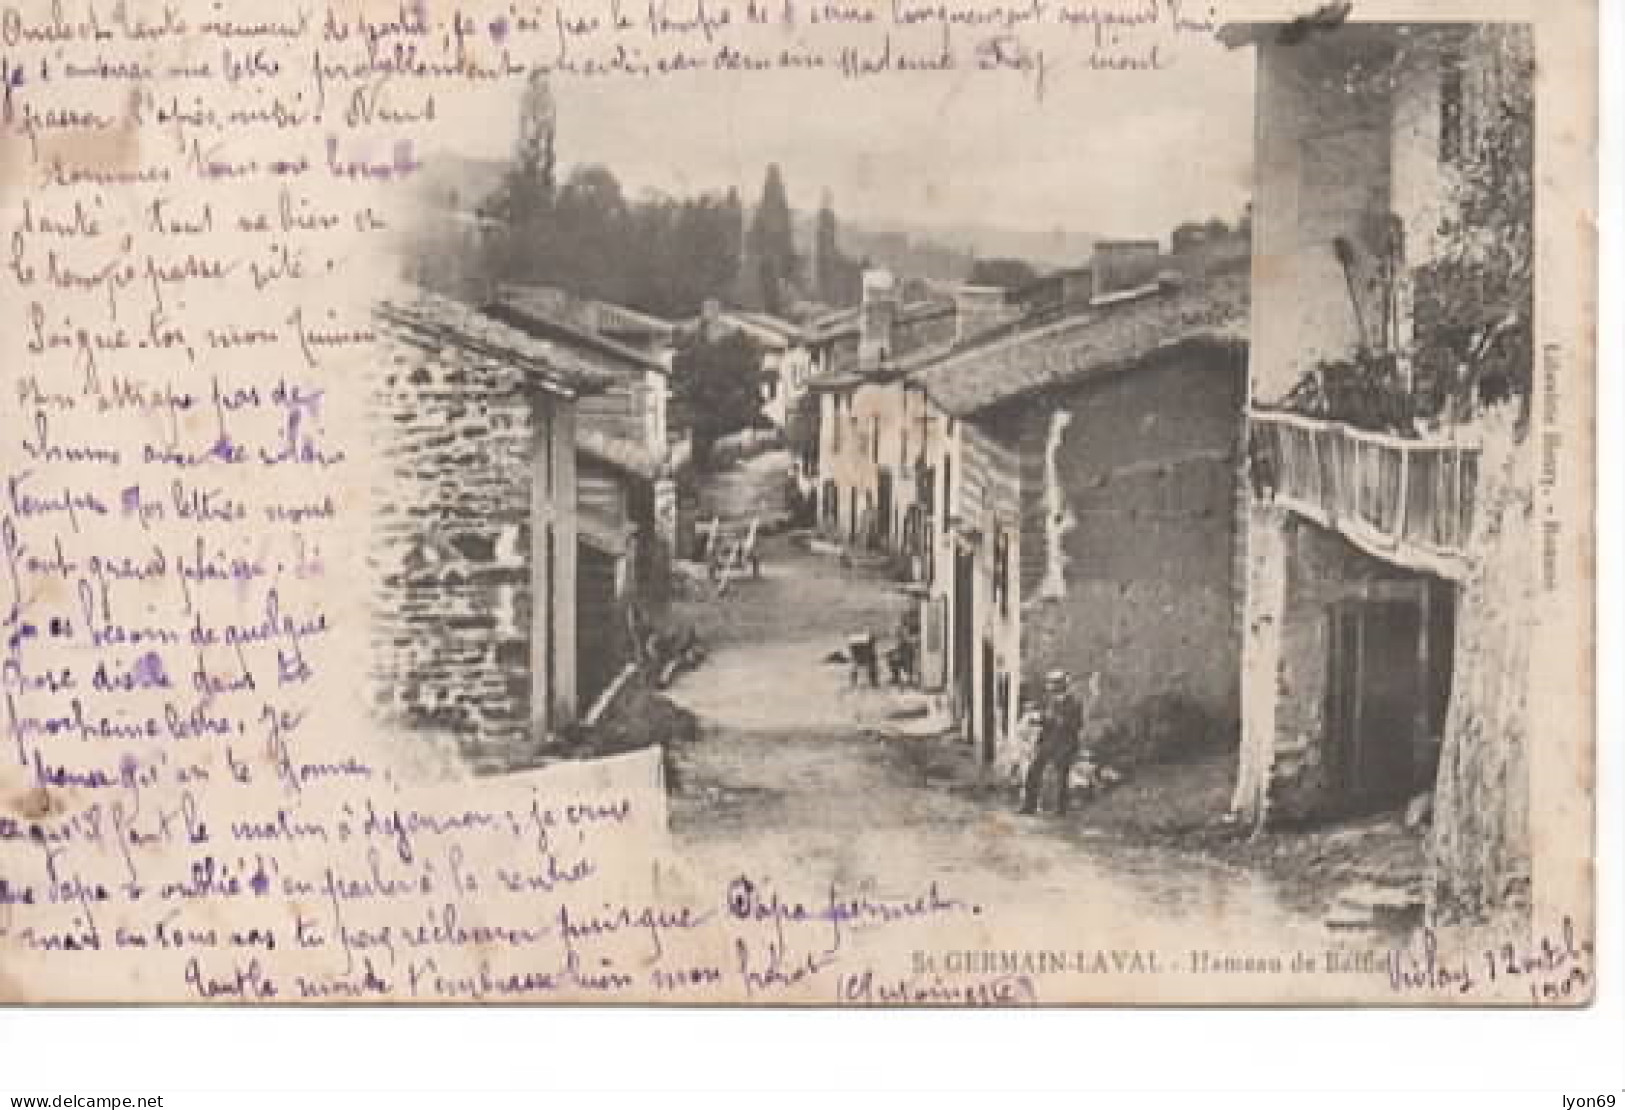 Oncle et tante viennent de partir, je n'ai pas le temps de t'écrire longuement aujourd'hui
je t'enverrai une lettre probablement demain Madame vient
passer l'après midi. Nous
sommes tous en bonne
santé, tout va bien et
le temps passe vite.
Soigne-toi, mon
N'attrape pas de
rhume avec ce vilain
temps Tes lettres nous
font grand plaisir. Si
tu as besoin de quelque
chose dis le dans ta
prochaine lettre. Je
pense qu'on te donne
ce qu'il faut le matin à déjeuner; je crois
que Papa a oublié d'en parler à la rentrée
mais en tous cas tu peux réclamer puisque Papa permet.
Tout le monde t'embrasse bien mon frérot
(Antoinette)
St GERMAIN-LAVAL - Hameau de Baffie
12 octob
190
Librairie Henry, - Roanne
lyon69